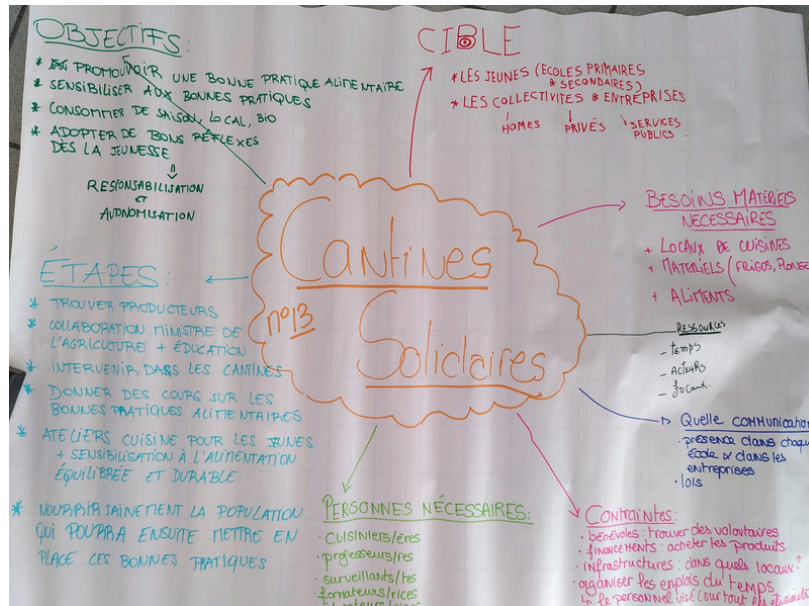 OBJECTIFS:
* PROMOUVOIR UNE BONNE PRATIQUE ALIMENTAIRE
* SENSIBILISER AUX BONNES PRATIQUES
* CONSOMMER DE SAISON, LOCAL, BIO
* ADOPTER DE BONS RÉFLEXES
DÈS LA JEUNESSE
RESPONSABILISATION
ET
AUTONOMISATION
CIBLE
* LES JEUNES (ECOLES PRIMAIRES
& SECONDAIRES)
* LES COLLECTIVITES & ENTREPRISES
HOMES PRIVÉS SERVICES
PUBLICS
BESOINS MATÉRIELS
NÉCESSAIRES
+ LOCAUX DE CUISINES
+ MATERIELS (FRIGOS, PLONGE
+ ALIMENTS
RESSOURCES
- TEMPS
- ACTEURS
- locaux.
Quelle COMMUNICATION
• présence dans chaque
école & dans les
entreprises
• lois
Cantines
n°13
Solidaires
ÉTAPES:
* TROUVER PRODUCTEURS
* COLLABORATION MINISTRE DE
L'AGRICULTURE + ÉDUCATION
* INTERVENIR DANS LES CANTINES
* DONNER DES COURS SUR LES
BONNES PRATIQUES ALIMENTAIRES
* ATELIERS CUISINE POUR LES JEUNES
+ SENSIBILISATION À L'ALIMENTATION
ÉQUILIBRÉE ET DURABLE
* NOURRIR SAINEMENT LA POPULATION
QUI POURRA ENSUITE METTRE EN
PLACE CES BONNES PRATIQUES
PERSONNES NÉCESSAIRES:
• cuisiniers/ères
• professeurs/res
• surveillants/tes
formateurs/rices
Contraintes:
• bénévoles: trouver des volontaires
• financements: acheter les produits
• infrastructures: dans quels locaux?
• organiser les emplois du temps
↳ le personnel visé (surtout les